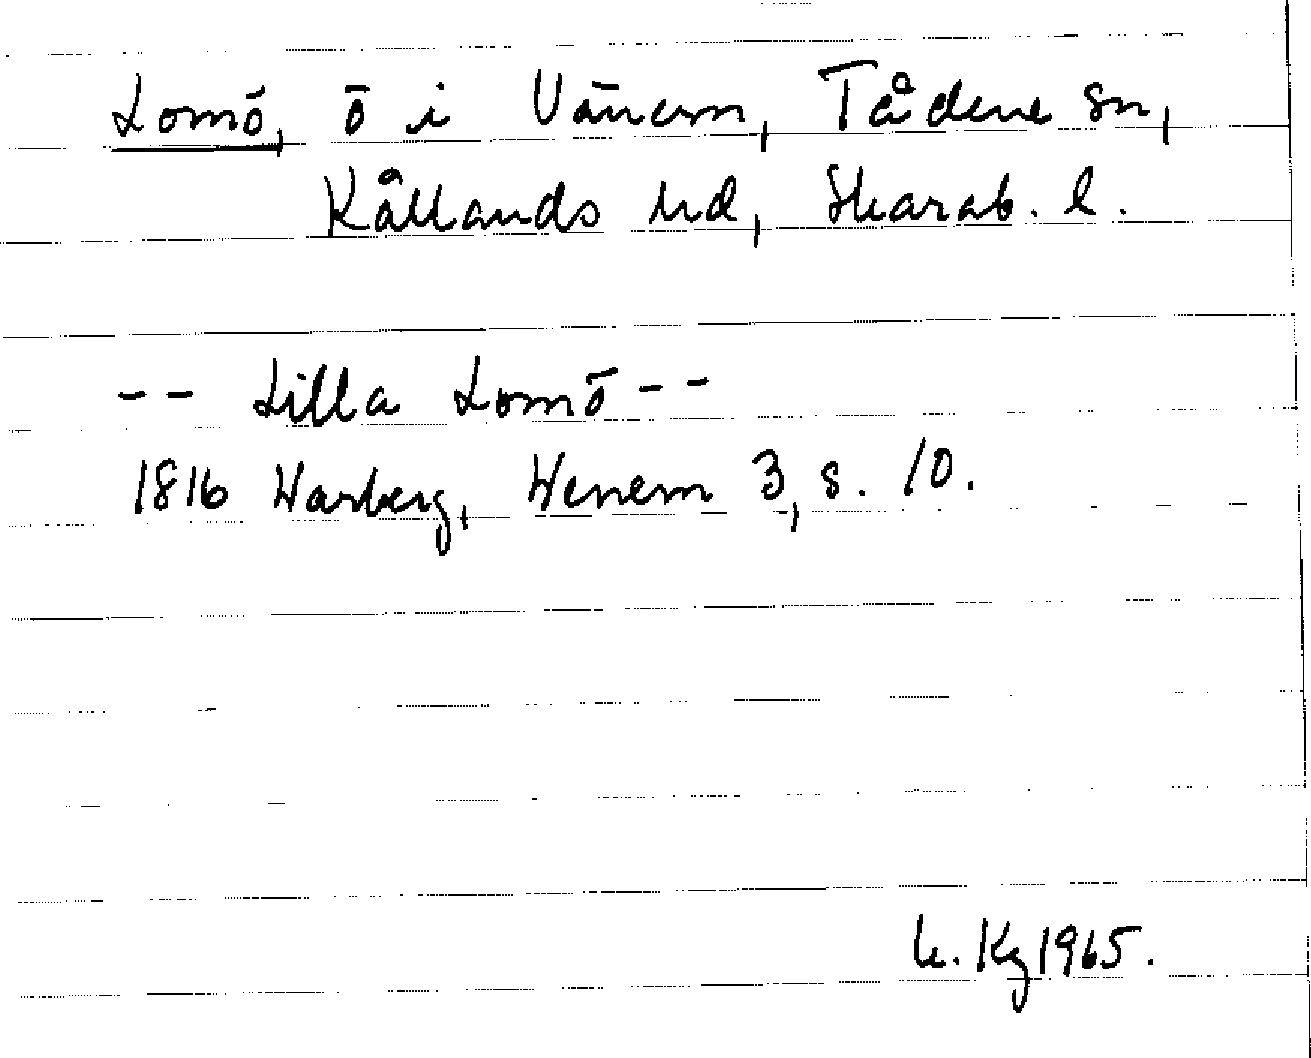 Lomö, ö i Vänern, Tådene sn,
Kållands hd, Skarab. l.
-- Lilla Lomö --
1816 Warberg, Wenern 3, s. 10.
L. Kg 1965.